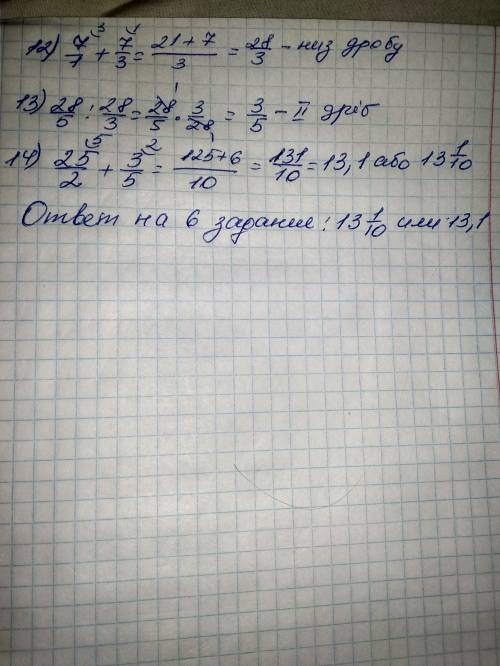 12) 7/1 ³ + 7/3 ¹ = (21+7)/3 = 28/3 - низ дробу
13) 28/5 : 28/3 = 28/5 · 3/28 = 3/5 - II дріб
14) 25/2 ⁵ + 3/5 ² = (125+6)/10 = 131/10 = 13,1 або 13 1/10
Ответ на 6 задание: 13 1/10 или 13,1